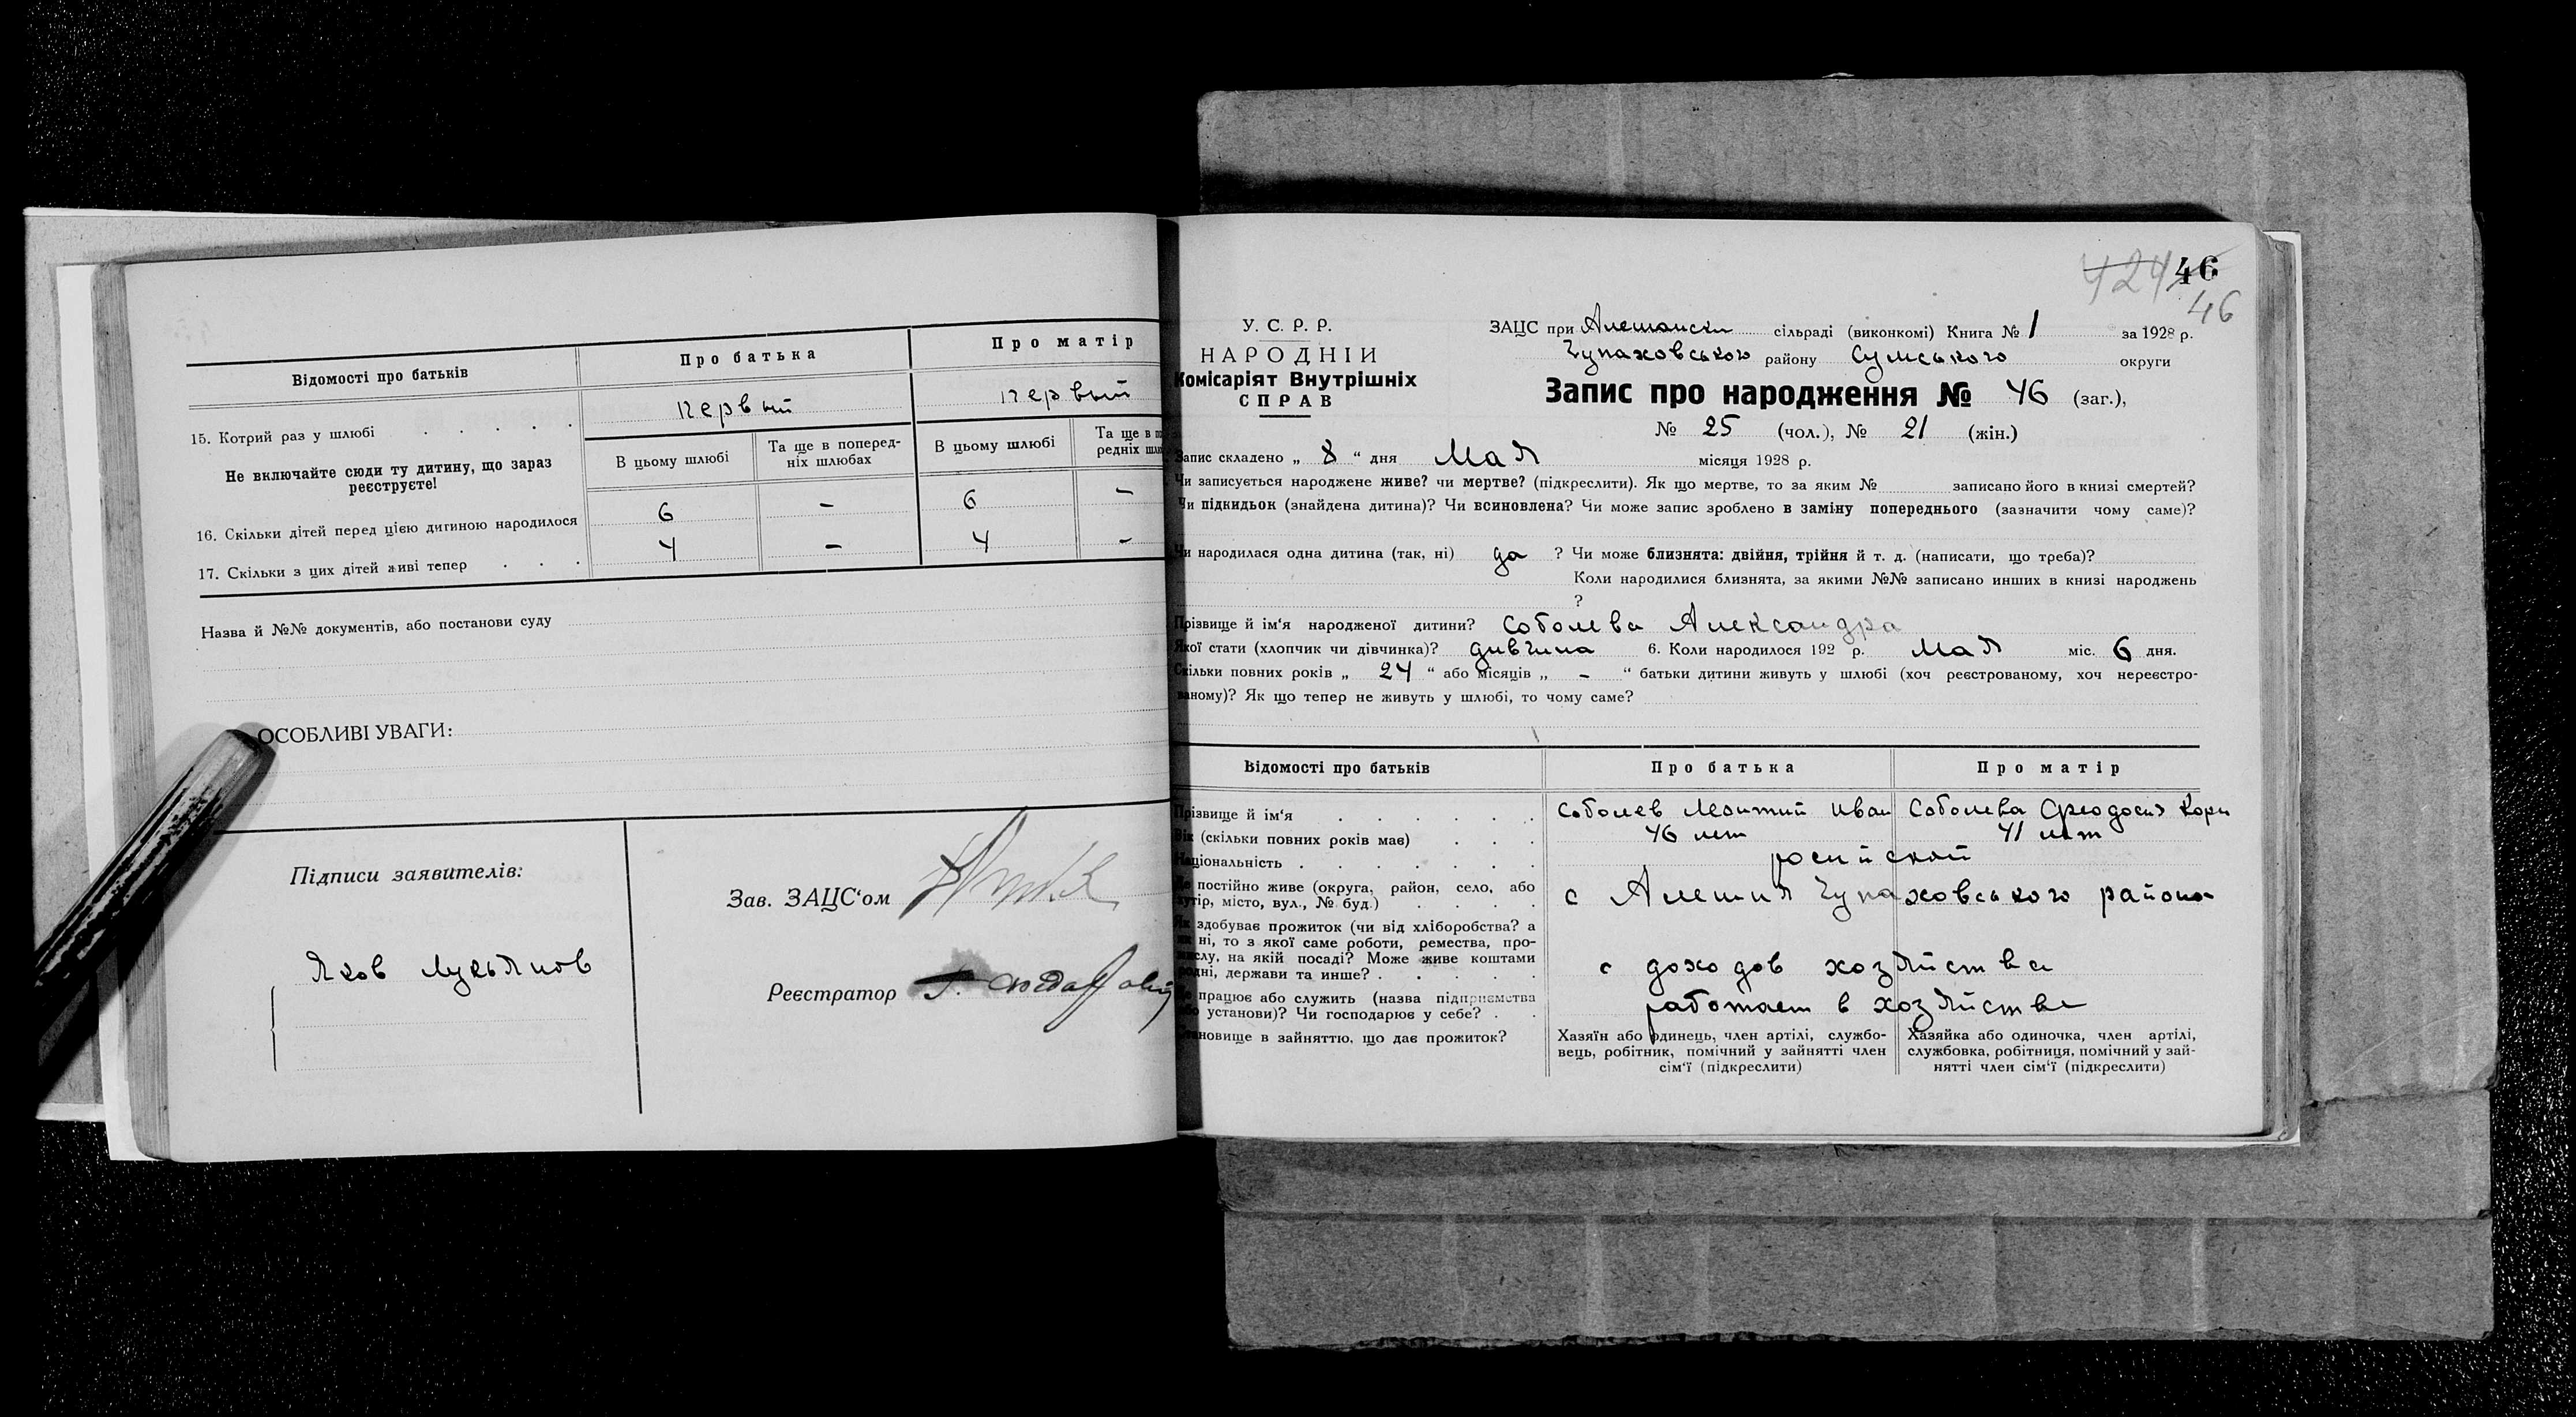 Відомості про батьків
Про батька
Про матір
15. Котрий раз у шлюбі
первый
первый
Не включайте сюди ту дитину, що зараз
реєструєте!
В цьому шлюбі
Та ще в поперед-
ніх шлюбах
В цьому шлюбі
Та ще в по
редніх шлю
16. Скільки дітей перед цією дитиною народилося
6 - 6 -
17. Скільки з цих дітей живі тепер
4 - 4 -
Назва й №№ документів, або постанови суду
ОСОБЛИВІ УВАГИ:
Підписи заявителів:
Яков Лукьянов
Зав. ЗАЦС‘ом
Реєстратор
424 46
46
У. С. Р. Р.
НАРОДНІЙ
Комісаріят Внутрішніх
СПРАВ
ЗАЦС при Алешански сільраді (виконкомі) Книга № 1 за 1928 р.
Чупаховського району Сумського округи
Запис про народження № 46 (заг.),
№ 25 (чол.), № 21 (жін.)
Запис складено „ 8 “ дня Мая місяця 1928 р.
Чи записується народжене живе? чи мертве? (підкреслити). Як що мертве, то за яким № записано його в книзі смертей?
Чи підкидьок (знайдена дитина)? Чи всиновлена? Чи може запис зроблено в заміну попереднього (зазначити чому саме)?
Чи народилася одна дитина (так, ні) да ? Чи може близнята: двійня, трійня й т. д. (написати, що треба)?
Коли народилися близнята, за якими №№ записано инших в книзі народжень
?
Прізвище й ім‘я народженої дитини? Соболева Александра
Якої стати (хлопчик чи дівчинка)? дивчина 6. Коли народилося 192 р. Мая міс. 6 дня.
Скільки повних років „ 24 “ або місяців „ - “ батьки дитини живуть у шлюбі (хоч реєстрованому, хоч нереєстро-
ваному)? Як що тепер не живуть у шлюбі, то чому саме?
Відомості про батьків
Про батька
Про матір
Прізвище й ім‘я
Соболев Иван
Соболева Феодосия Корн
Вік (скільки повних років має)
46 лет
41 лет
Національність
росийской
постійно живе (округа, район, село, або
хутір, місто, вул., № буд.)
с Алешня Чупаховського района
здобуває прожиток (чи від хліборобства? а
ні, то з якої саме роботи, ремества, про-
мислу, на якій посаді? Може живе коштами
родні, держави та инше?
с доходов хозяйства
працює або служить (назва підприємства
установи)? Чи господарює у себе?
работает в хозяйстве
новище в зайняттю, що дає прожиток?
Хазяїн або одинець, член артілі, службо-
вець, робітник, помічний у зайнятті член
сім‘ї (підкреслити)
Хазяйка або одиночка, член артілі,
службовка, робітниця, помічний у зай-
нятті член сім‘ї (підкреслити)